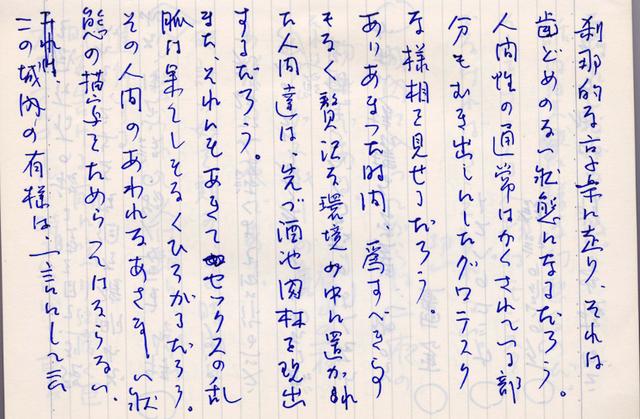 刹那的な享楽に走り、それは
歯どめのない状態になるだろう。
人間性の通常はかくされている部
分もむき出しにしたグロテスク
な様相を見せるだろう。
ありあまった時間、為すべき事
もなく贅沢な環境の中に置かれ
た人間達は、先づ酒池肉林を現出
するだろう。
また、それにもあきてセックスの乱
脈は果てしもなくひろがるだろう。
その人間のあわれなあさましい状
態の描写をためらってはならない。
この城内の有様は、一言にして言